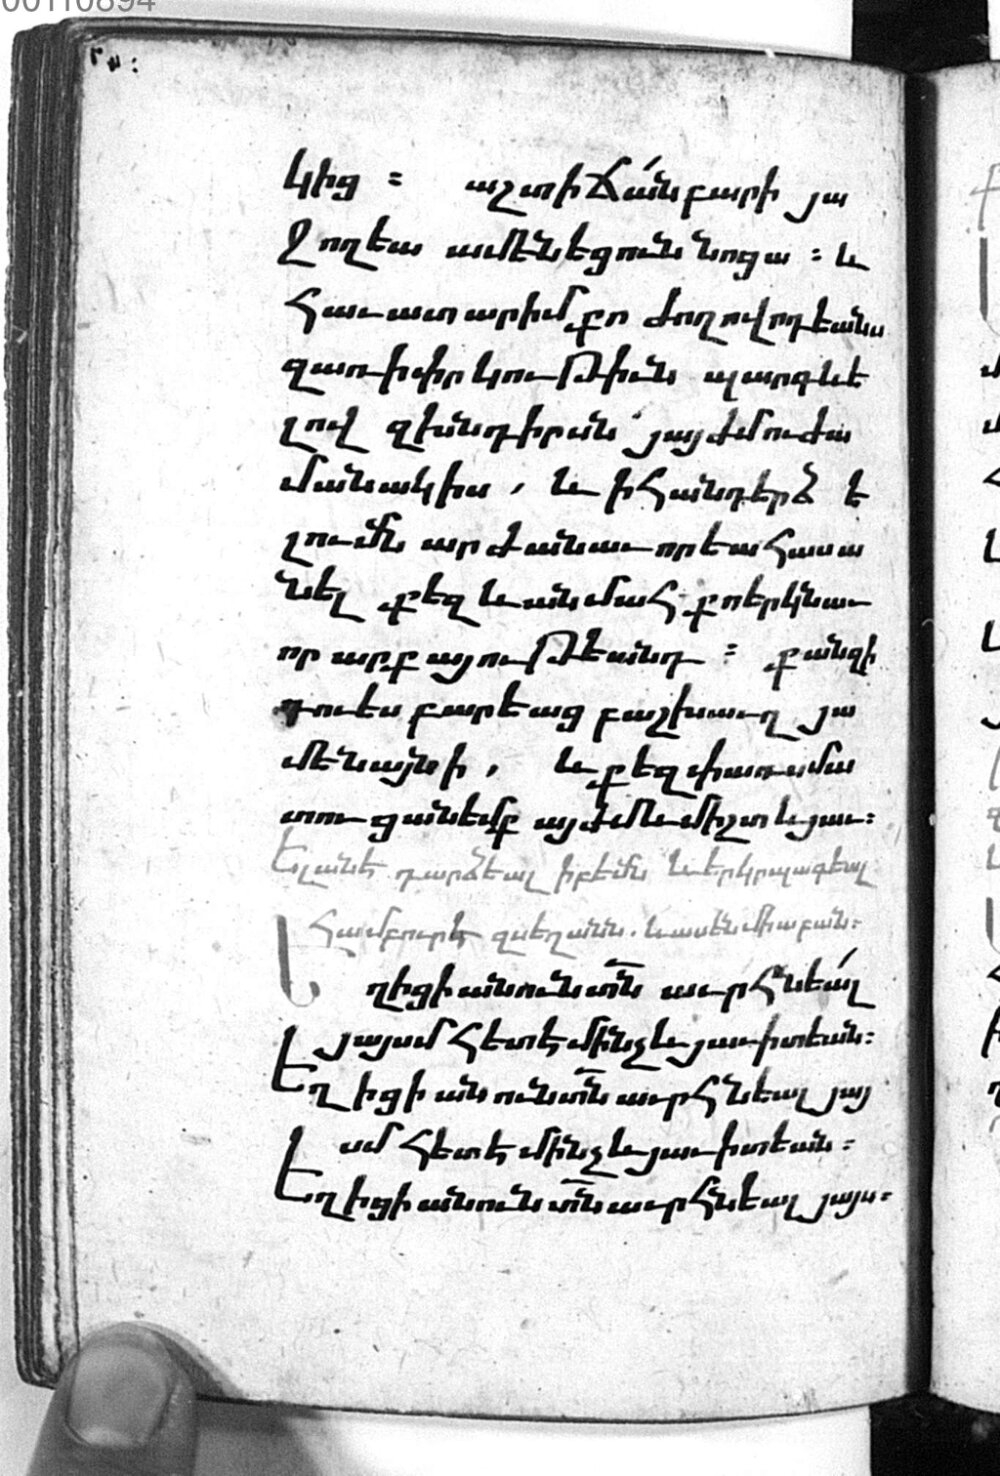 00110894
կից ։ աշտիճանբարի յա
ջողեա ամենեցուննոցա ։ և
հաւատարիմքո ժողովրդեանս
զառիփրկութիւն պարգևե
լով զխնդիրսն յայժմուժա
մանակիս , և իհանդերձ ե
լումն արժանաւորեա հասա
նել քեզ և անմահ քոերկնաւ
որ արքայութեանդ ։ քանզի
դուես բարեաց բաշխաւղ յա
մենայնի , և քեզ փառս մա
տուցանեմք այժմ և միշտ և յաւ։
Ելանե դարձեալ իբեմն և երկրպագեալ
համբուրէ զսեղանն . և ասեն միաբան։
Եղիցի անուն տն աւրհնեալ
յայսմ հետէ մինչև յաւիտեան։
Եղիցի անուն տն աւրհնեալ յայ
սմ հետէ մինչև յաւիտեան ։
Եղիցի անուն տն աւրհնեալ յայս։